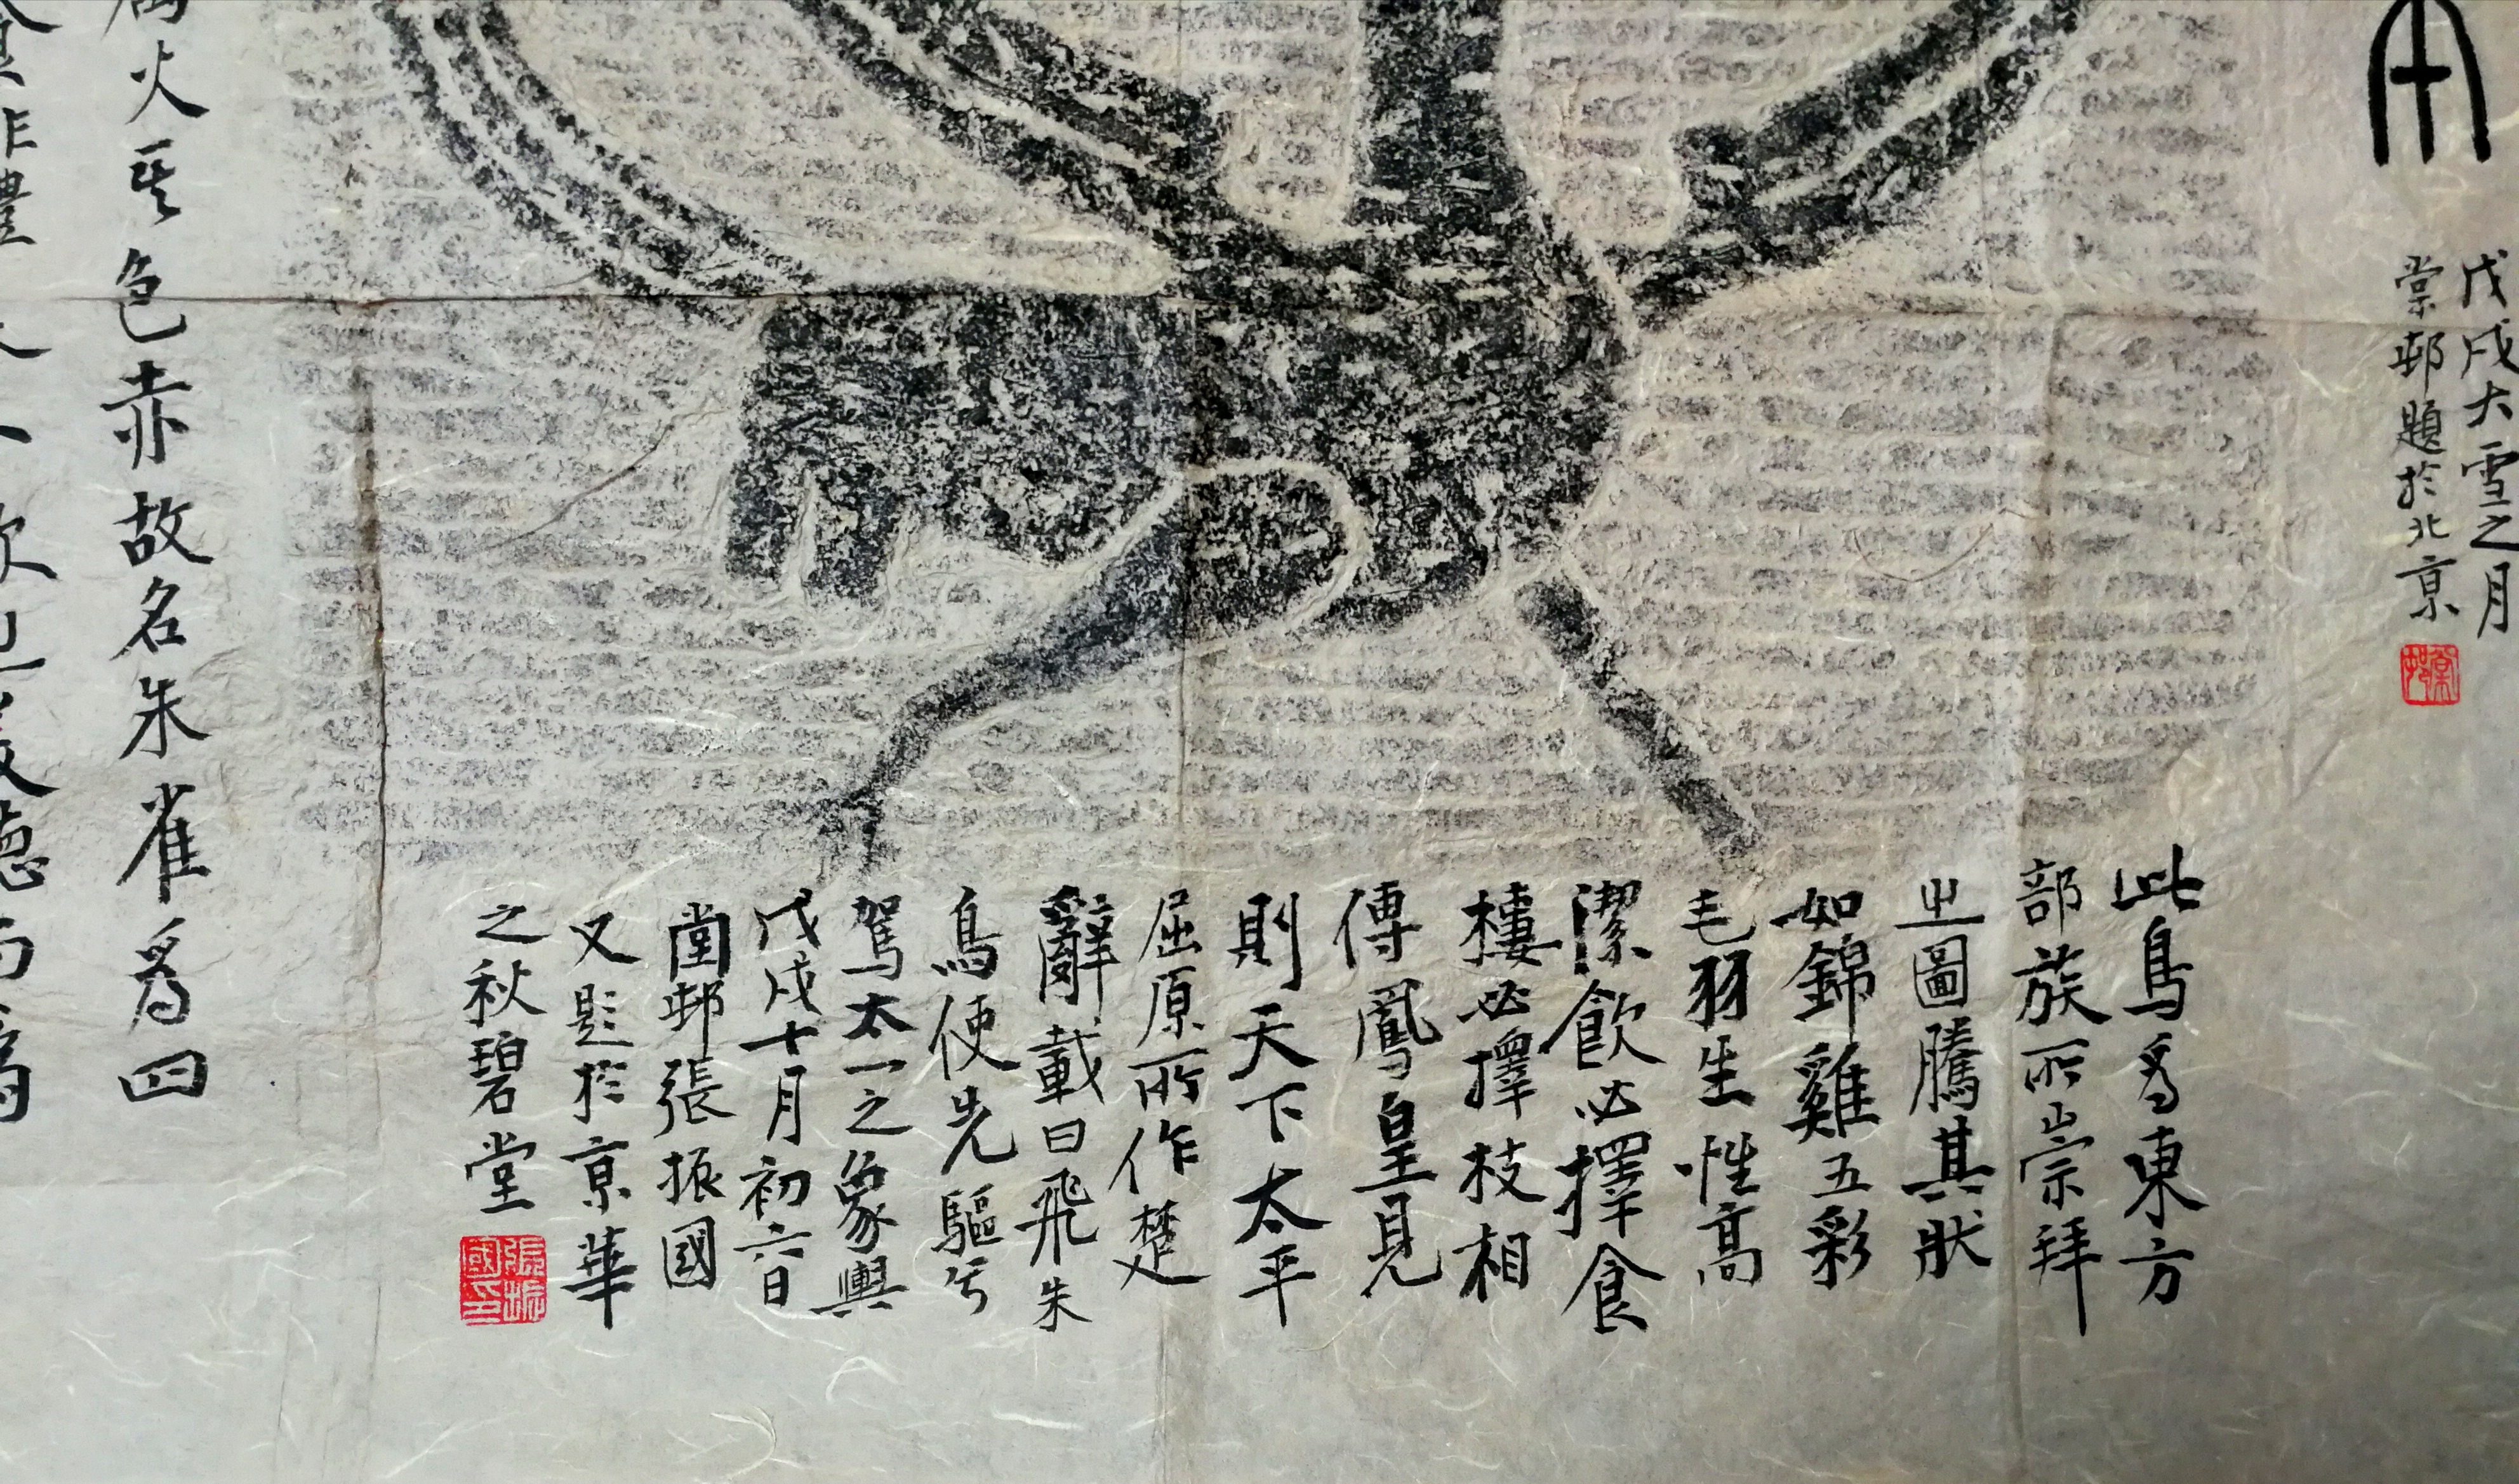 戊戌大雪之月
棠邨題於北京
棠邨
此鳥爲東方
部族所崇拜
㞢圖騰其狀
如錦雞五彩
毛羽生性高
潔飲必擇食
棲必擇枝相
傳鳳皇見
則天下太平
屈原所作楚
辭載曰飛朱
鳥使先驅兮
駕太一之象輿
戊戌十月初六日
棠邨張振國
又題於京華
之秋碧堂
張振國印
火其色赤故名朱雀爲四